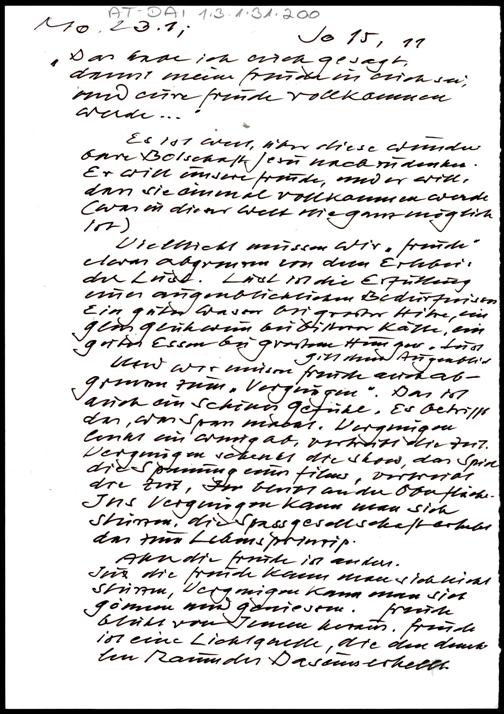 AT-DAI 1.3.1.31.200
Mo. 23.1.; Jo 15, 11
„Das habe ich euch gesagt,
damit meine Freude in euch sei,
und eure Freude vollkommen
werde..."
Es ist wert, über diese wunder
bare Botschaft Jesu nachzudenken.
Er will unsere Freude, und er will,
dass sie einmal vollkommen werde
(was in dieser Welt nie ganz möglich
ist)
Vielleicht müssen wir „Freude"
etwas abgrenzen von dem Erlebnis
der Lust. Lust ist die Erfüllung
eines augenblicklichen Bedürfnisses
Ein gutes Wasser bei grosser Hitze, ein
Glas Glühwein bei bitterer Kälte, ein
gutes Essen bei grossem Hunger. Lust
gilt dem Augenblick
Und wir müssen Freude auch ab-
grenzen zum „Vergnügen". Das ist
auch ein schönes Gefühl. Es betrifft
das, was Spass macht. Vergnügen
lenkt ein wenig ab, vertreibt die Zeit.
Vergnügen schenkt die Show, das Spiel
die Spannung eines Films, vertreibt
die Zeit, bleibt an der Oberfläche.
Ins Vergnügen kann man sich
stürzen, die Spassgesellschaft erhebt
das zum Lebensprinzip.
Aber die Freude ist anders.
In die Freude kann man sich nicht
stürzen, Vergnügen kann man sich
gönnen und geniessen. Freude
blüht von Innen heraus. Freude
ist eine Lichtquelle, die den dunk-
len Raum des Daseins erhellt